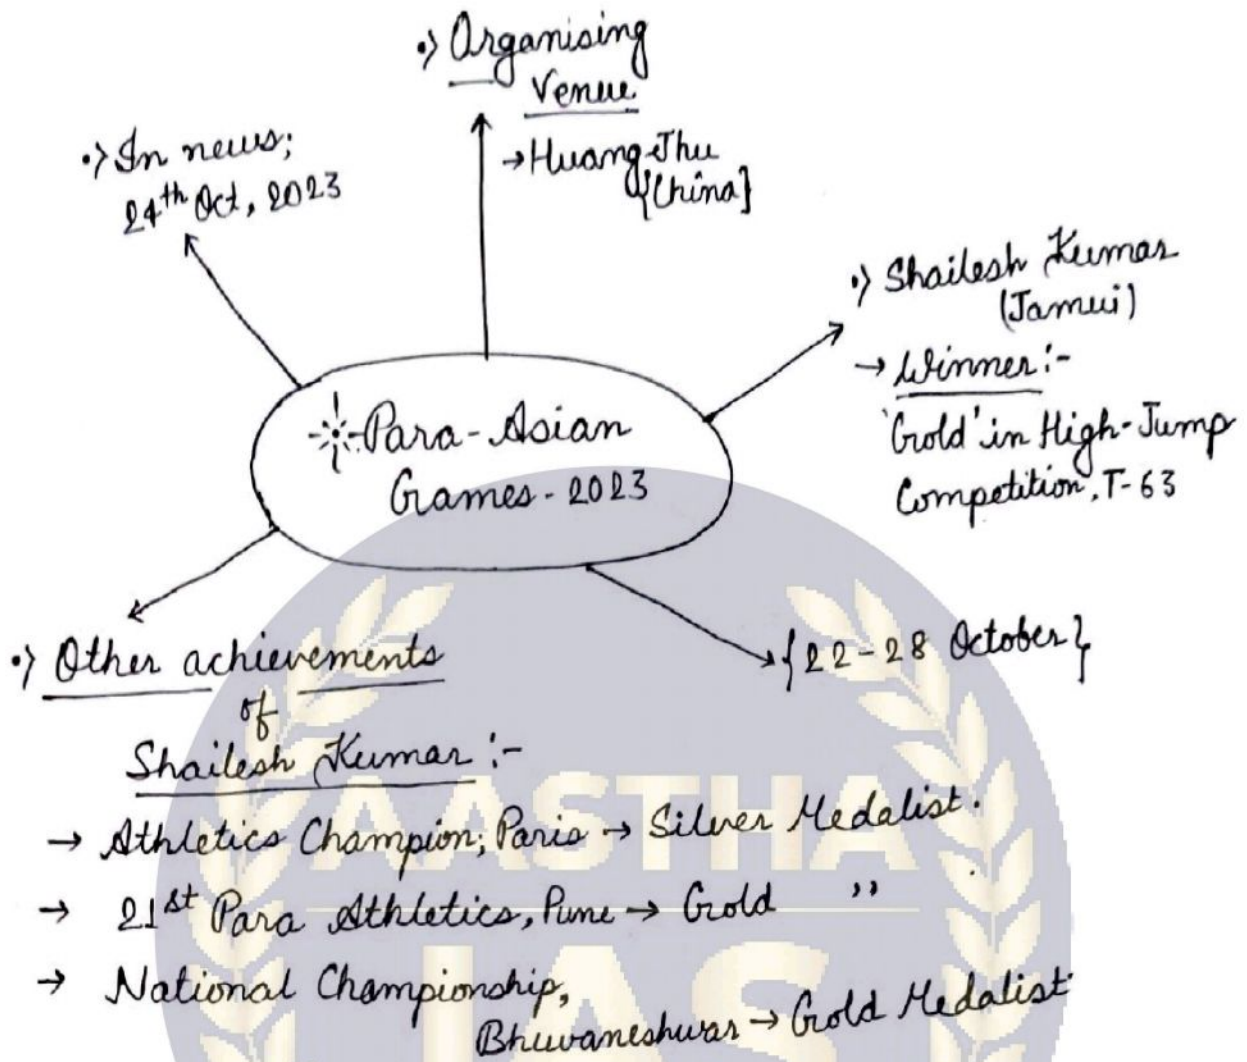 •> Organising
Venue
→ Huang-Jhu
{China]
•> In news;
24th Oct, 2023
•> Shailesh Kumar
(Jamui)
→ Winner:-
'Gold' in High-Jump
Competition, T-63
Para-Asian
Games-2023
{22-28 October}
•> Other achievements
of
Shailesh Kumar:-
→ Athletics Champion; Paris → Silver Medalist.
→ 21st Para Athletics, Pune → Gold ,,
→ National Championship,
Bhuvaneshwar → Gold Medalist
AASTHA
IAS